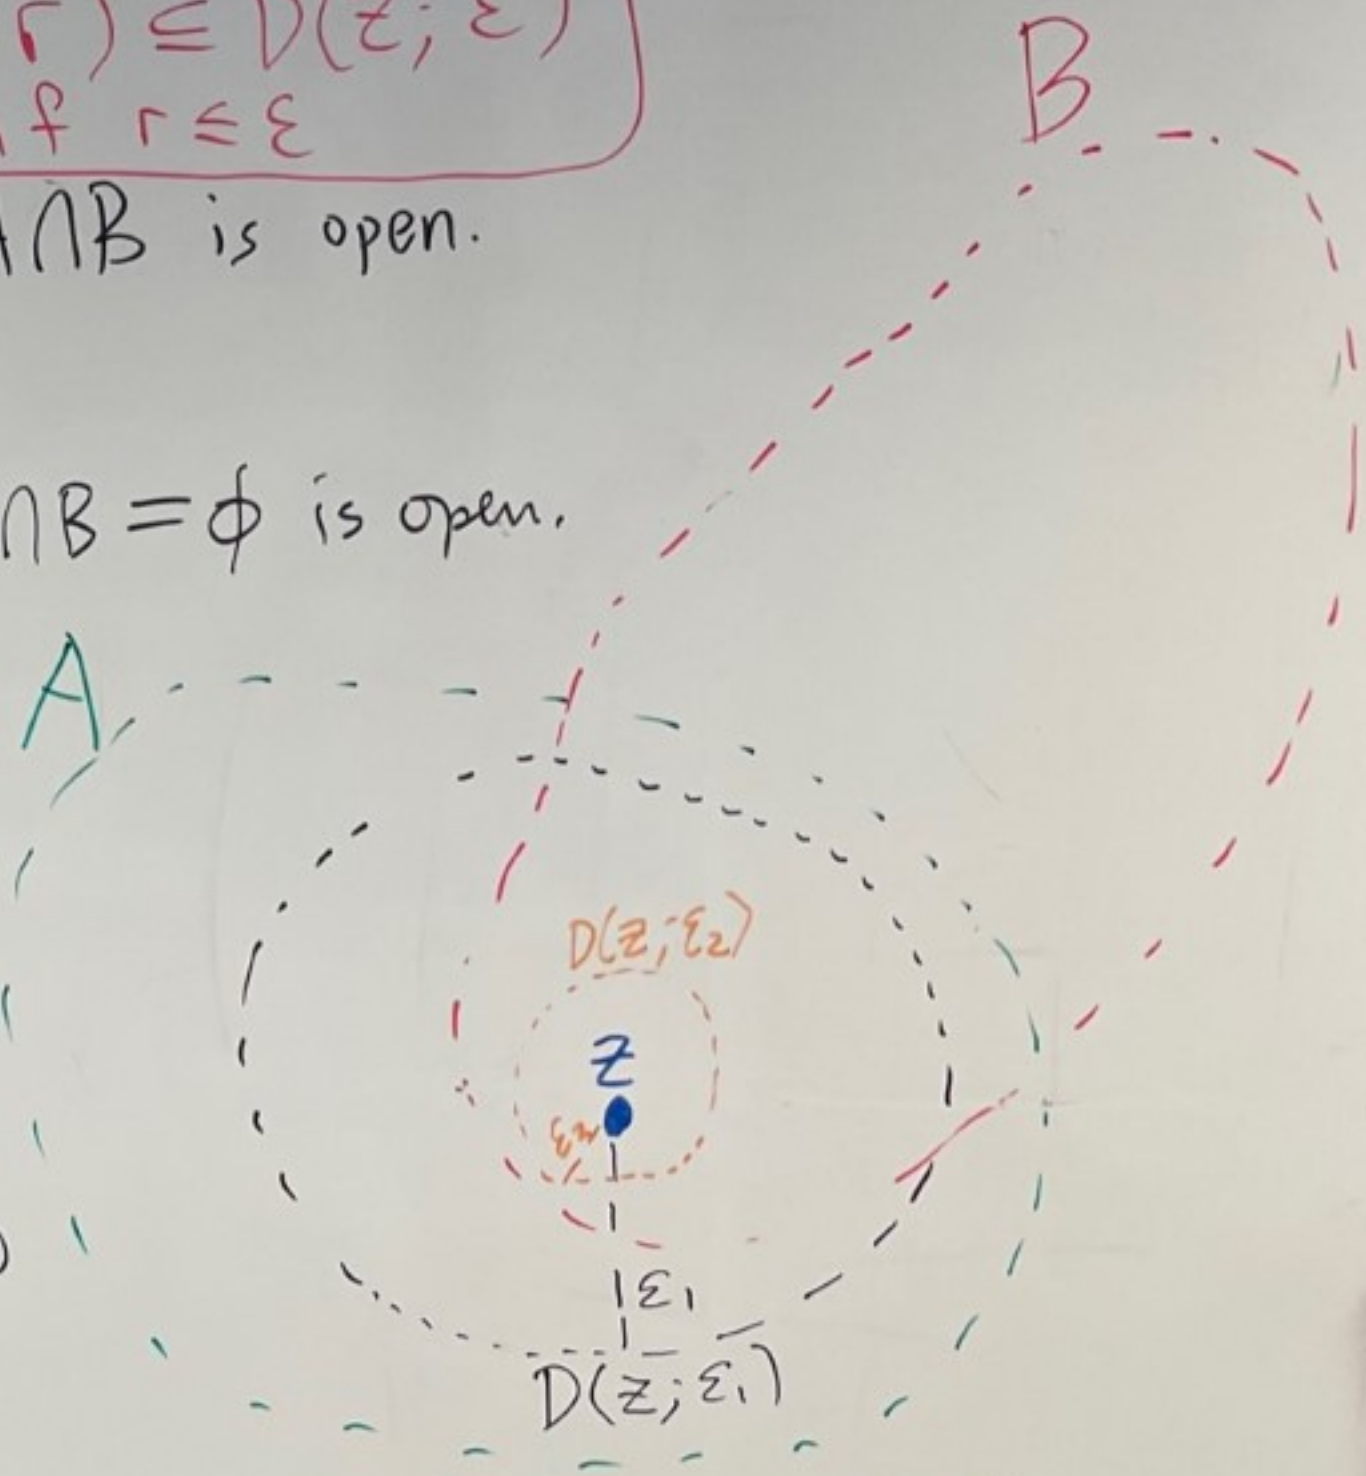 r) ⊆ D(z; ε)
if r ≤ ε
A∩B is open.
∩B = ϕ is open.
B
A
D(z; ε₂)
z
ε₂
ε₁
D(z; ε₁)